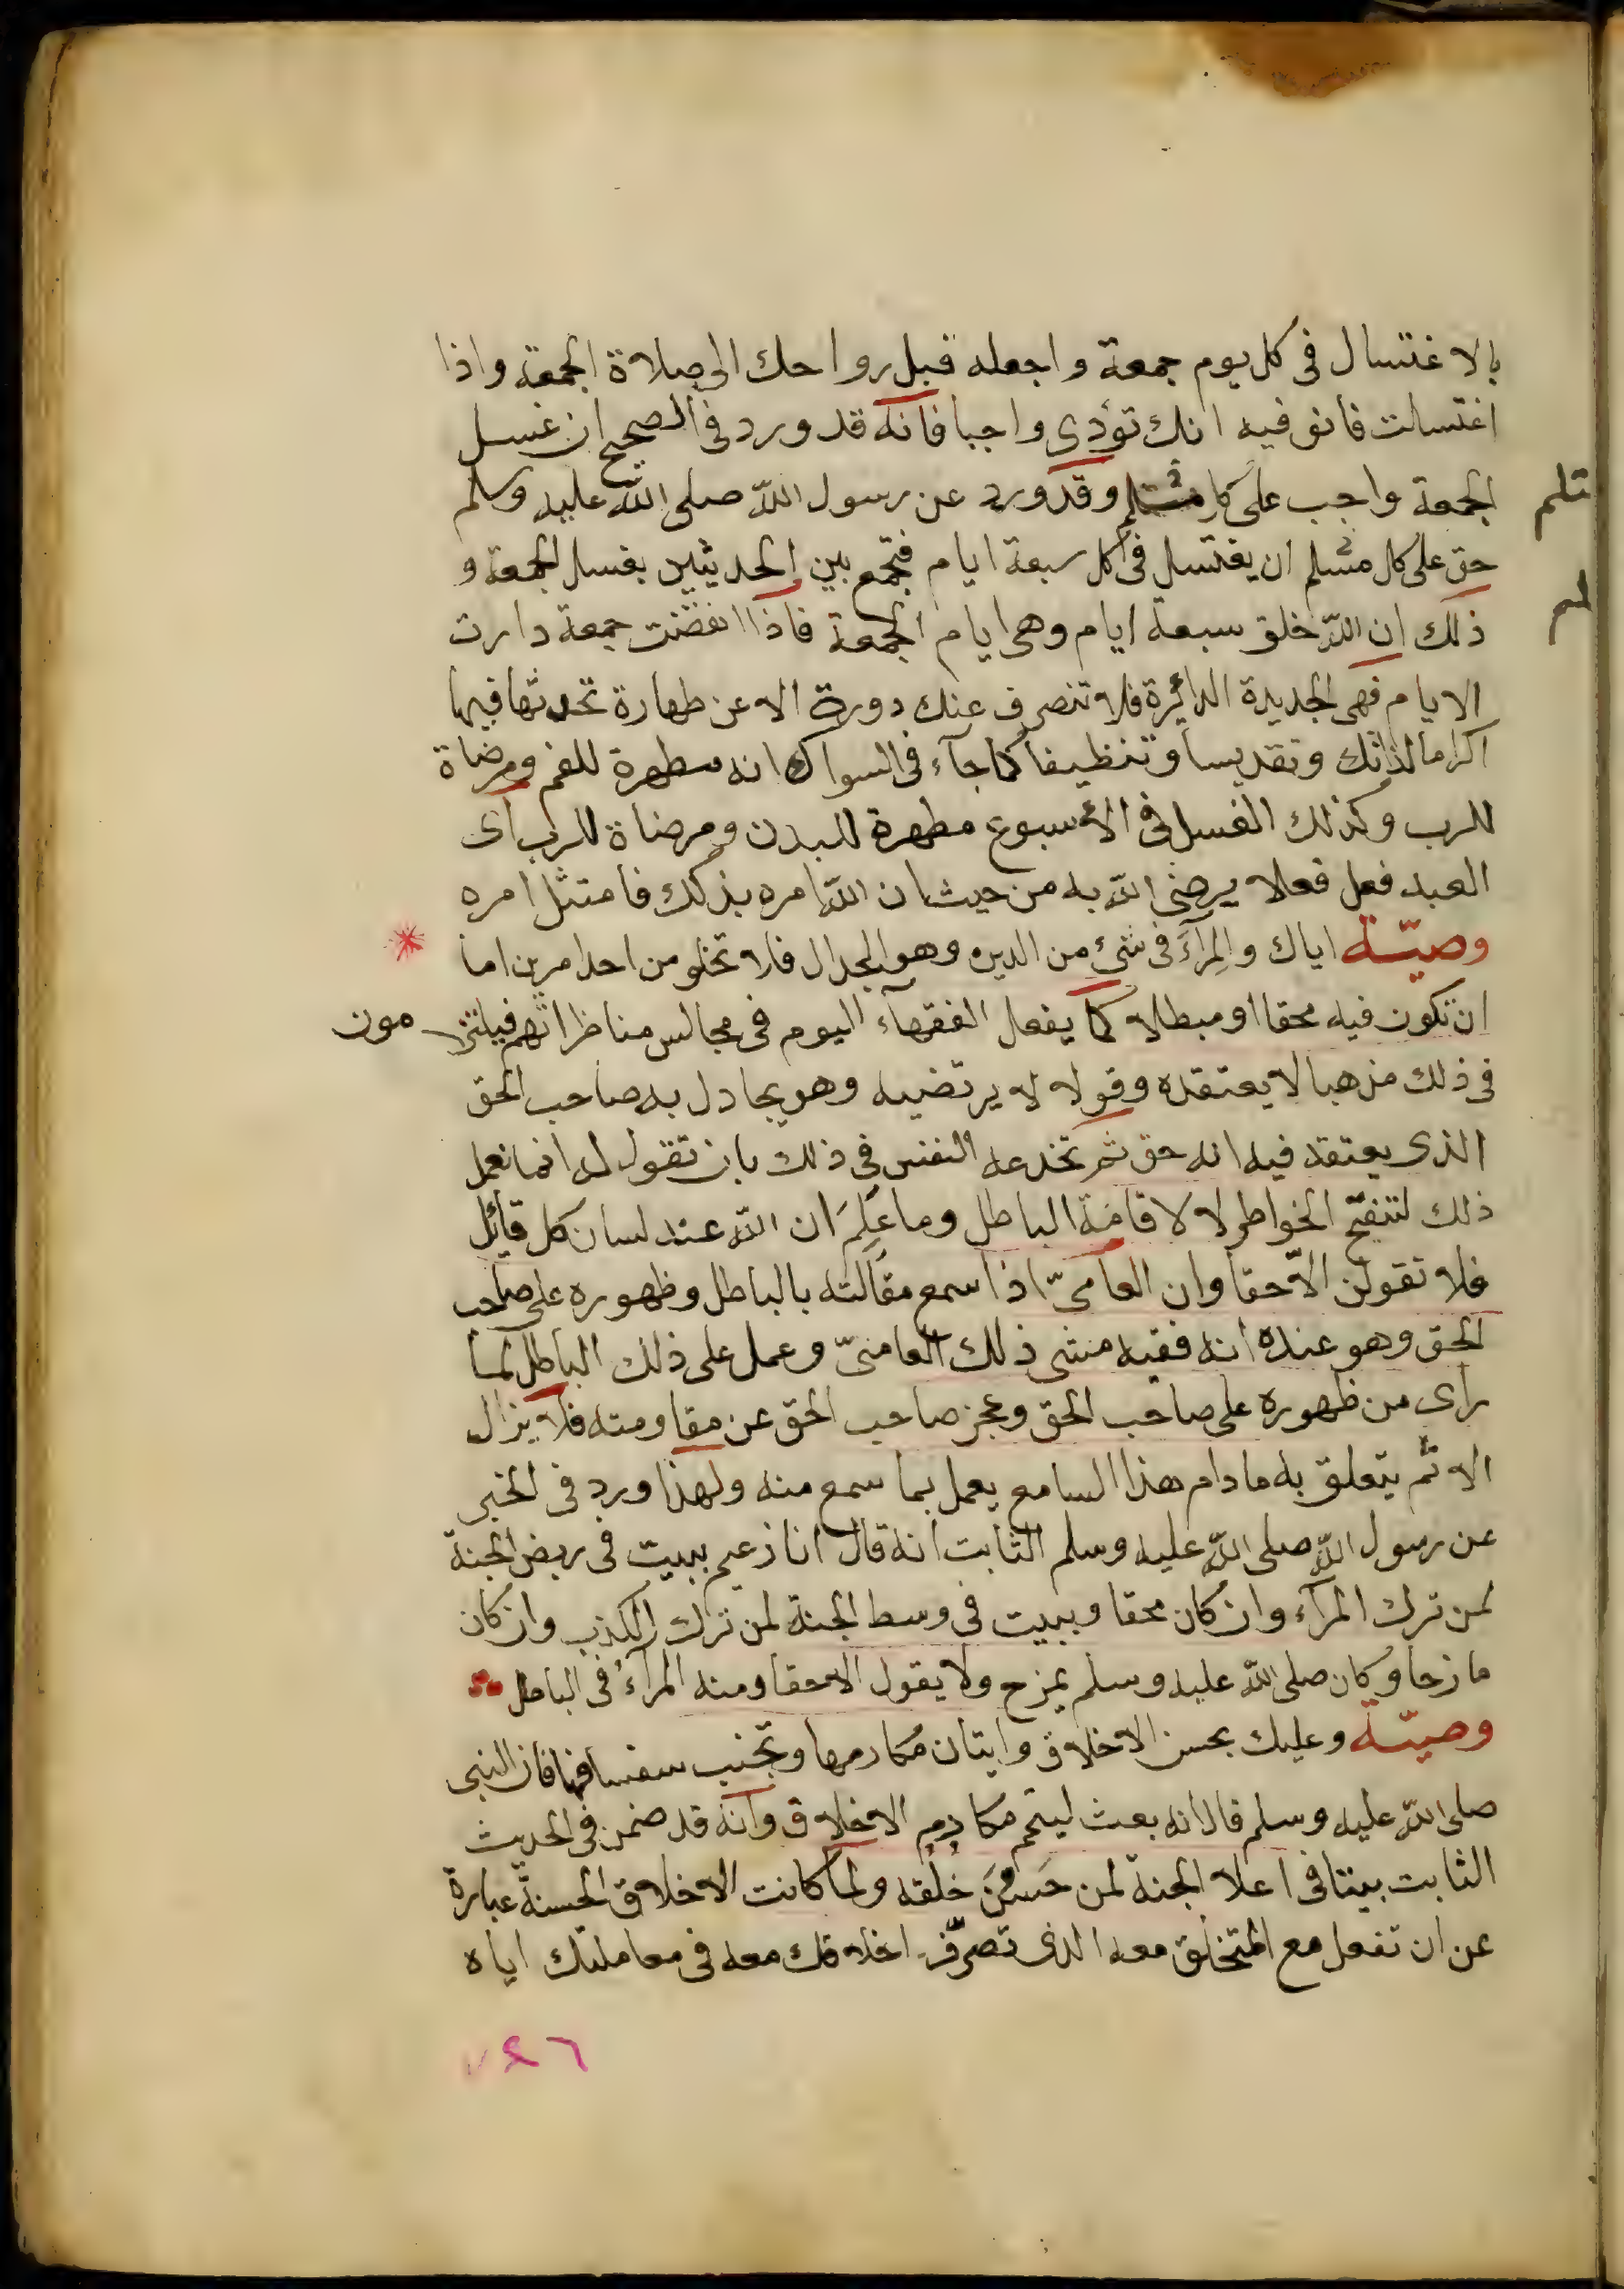 بالاغتسال فى كل يوم جمعة واجعله قبل رواحك الى صلاة الجمعة واذا
اغتسلت فانو فيه انك تؤدى واجبا فانه قد ورد فى الصحيح ان غسل
الجمعة واجب على كل مسلم وقد ورد عن رسول الله صلى الله عليه وسلم
حق على كل مسلم ان يغتسل فى كل سبعة ايام فتجمع بين الحديثين بغسل الجمعة و
ذلك ان الله خلق سبعة ايام وهى ايام الجمعة فاذا انقضت جمعة دارت
الايام فهى الجديدة الدائرة فلا تنصرف عنك دورة الا عن طهارة تحدثها فيها
اكراما لذاتك وتقديسا وتنظيفا كما جآء فى السواك انه مطهرة للفم ومرضاة
للرب وكذلك الغسل فى الأسبوع مطهرة للبدن ومرضاة للرب اى
العبد فعل فعلا يرضى الله به من حيث ان الله امره بذلك فامتثل امره
وصيّة اياك والمِرآءَ فى شئ من الدين وهو الجدال فلا تخلو من احد امرين اما
ان تكون فيه محقا او مبطلا كما يفعل الفقهآء اليوم فى مجالس مناظراتهم فيلتز مون
فى ذلك مذهبا لا يعتقده وقولا لا يرتضيه وهو يجادل به صاحب الحق
الذى يعتقد فيه انه حق ثم تخدعه النفس فى ذلك بان تقول له انما نعمل
ذلك لتنقيح الخواطر لا لاقامة الباطل وما عَلِمَ ان الله عند لسان كل قائل
فلا تقولن الّا حقا وان العامىّ اذا سمع مقالته بالباطل وظهوره على صاحب
الحق وهو عنده انه فقيه مشى ذلك العامىّ وعمل على ذلك الباطل لما
راى من ظهوره على صاحب الحق وعجز صاحب الحق عن مقاومته فلا يزال
الاثم يتعلق به ما دام هذا السامع يعمل بما سمع منه ولهذا ورد فى الخبر
عن رسول الله صلى الله عليه وسلم الثابت انه قال انا زعيم ببيت فى ربض الجنة
لمن ترك المرآء وان كان محقا وببيت فى وسط الجنة لمن ترك الكذب وان كان
مازحا وكان صلى الله عليه وسلم يمزح ولا يقول الا حقا ومنه المرآءُ فى الباطل
وصيّة وعليك بحسن الاخلاق واتيان مكارمها وتجنب سفسافها فان النبى
صلى الله عليه وسلم قال انه بعث ليتمم مكارم الاخلاق وانه قد ضمن فى الحديث
الثابت بيتا فى اعلا الجنة لمن حَسُنَ خُلُقه ولما كانت الاخلاق الحسنة عبارة
عن ان تفعل مع المتخلق معه الذى تصرّف اخلاقك معه فى معاملتك اياه